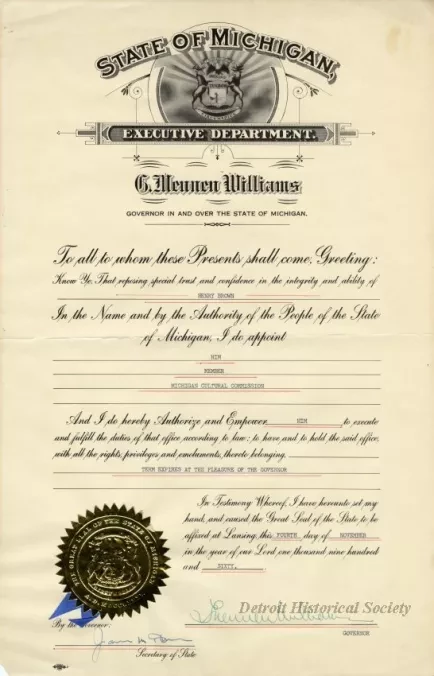 STATE OF MICHIGAN,
EXECUTIVE DEPARTMENT.
G. Mennen Williams
GOVERNOR IN AND OVER THE STATE OF MICHIGAN.
To all to whom these Presents shall come, Greeting:
Know Ye, That reposing special trust and confidence in the integrity and ability of
HENRY BROWN
In the Name and by the Authority of the People of the State
of Michigan, I do appoint
HIM
MEMBER
MICHIGAN CULTURAL COMMISSION
And I do hereby Authorize and Empower HIM to execute
and fulfill the duties of that office according to law; to have and to hold the said office,
with all the rights, privileges and emoluments, thereto belonging.
TERM EXPIRES AT THE PLEASURE OF THE GOVERNOR
In Testimony Whereof, I have hereunto set my
hand, and caused the Great Seal of the State to be
affixed at Lansing, this FOURTH day of NOVEMBER
in the year of our Lord one thousand nine hundred
and SIXTY.
THE GREAT SEAL OF THE STATE OF MICHIGAN
Detroit Historical Society
By the Governor:
GOVERNOR
Secretary of State